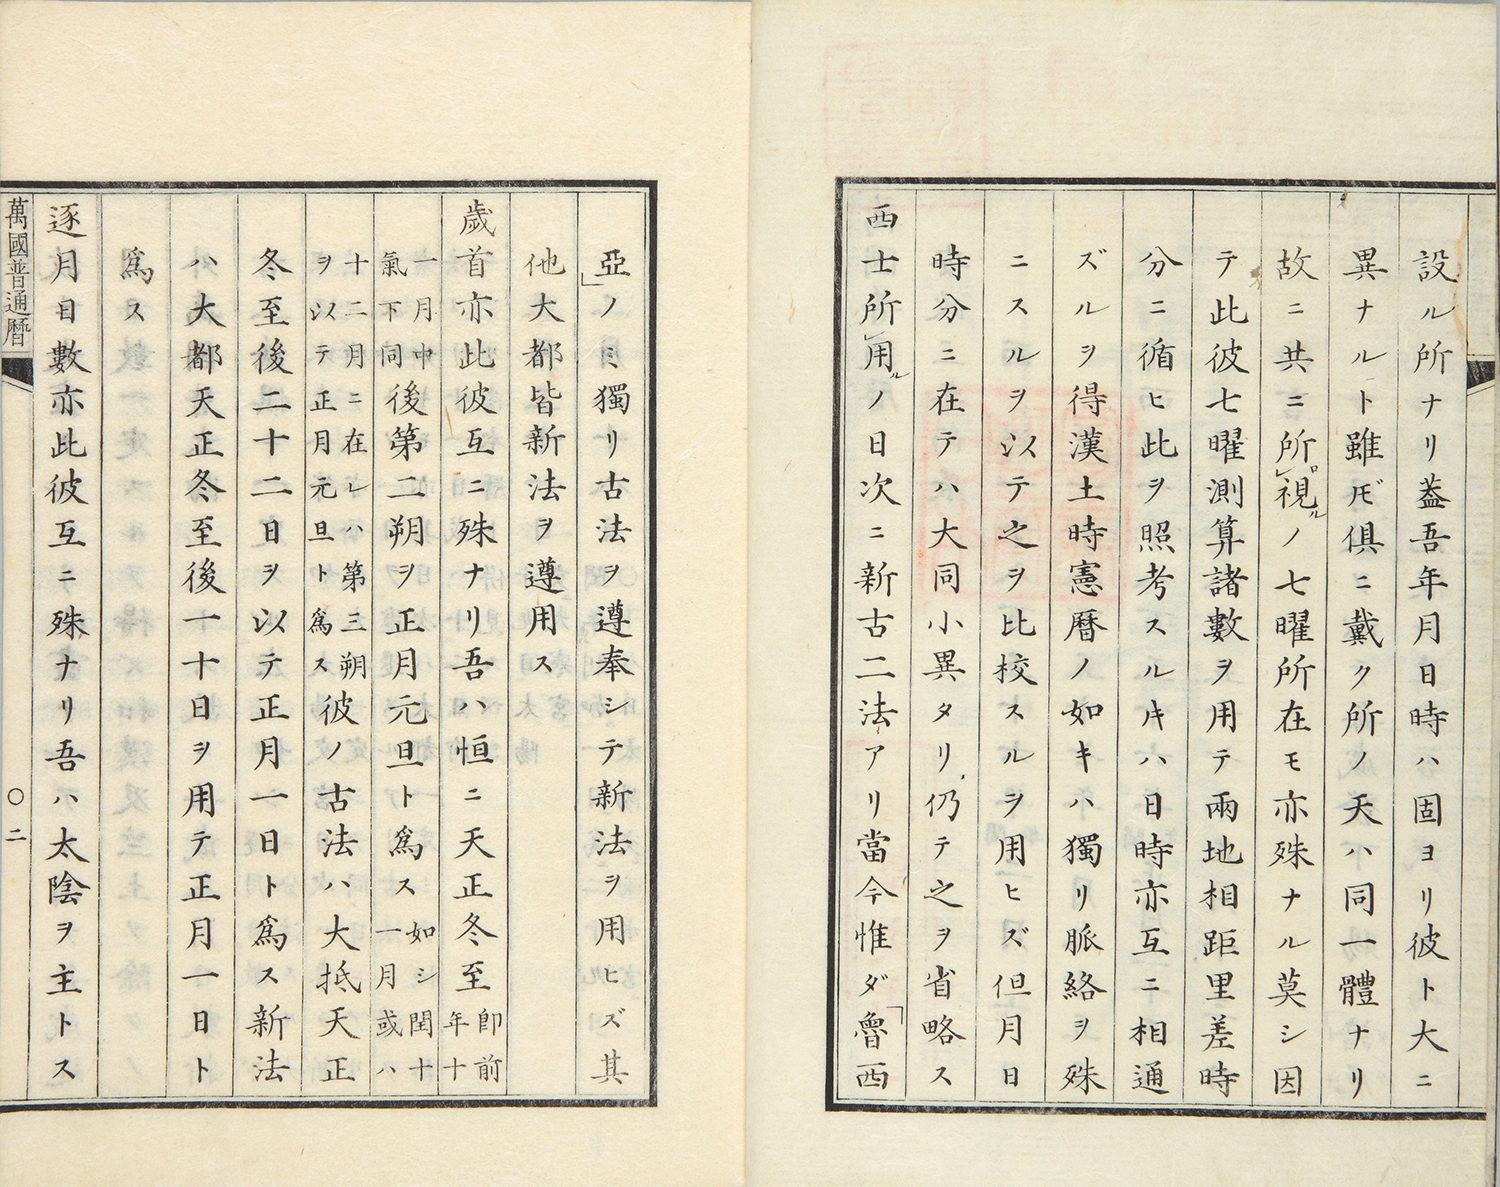 設ル所ナリ蓋吾年月日時ハ固ヨリ彼ト大ニ
異ナルト雖𪜈俱ニ戴ク所ノ天ハ同一體ナリ
故ニ其ニ所レ視ルノ七曜所在モ亦殊ナル莫シ因
テ此彼七曜測算諸數ヲ用テ兩地相距里差時
分ニ循ヒ此ヲ照考スルキハ日時亦互ニ相通
ズルヲ得漢土時憲曆ノ如キハ獨リ脈絡ヲ殊
ニスルヲ以テ之ヲ比校スルヲ用ヒズ但月日
時分ニ在テハ大同小異タリ仍テ之ヲ省略ス
西士所レ用ルノ日次ニ新古二法アリ當今惟ダ「魯西
亞」ノミ獨リ古法ヲ遵奉シテ新法ヲ用ヒズ其
他大都皆新法ヲ遵用ス
歲首亦此彼互ニ殊ナリ吾ハ恒ニ天正冬至即前年十
一月中氣下同後第二朔ヲ正月元旦ト爲ス如シ閏十一月或ハ
十二月ニ在レハ第三朔ヲ以テ正月元旦ト爲ス彼ノ古法ハ大抵天正
冬至後二十二日ヲ以テ正月一日ト爲ス新法
ハ大都天正冬至後一十日ヲ用テ正月一日ト
爲ス
逐月日數亦此彼互ニ殊ナリ吾ハ太陰ヲ主トス
萬國普通曆
〇二